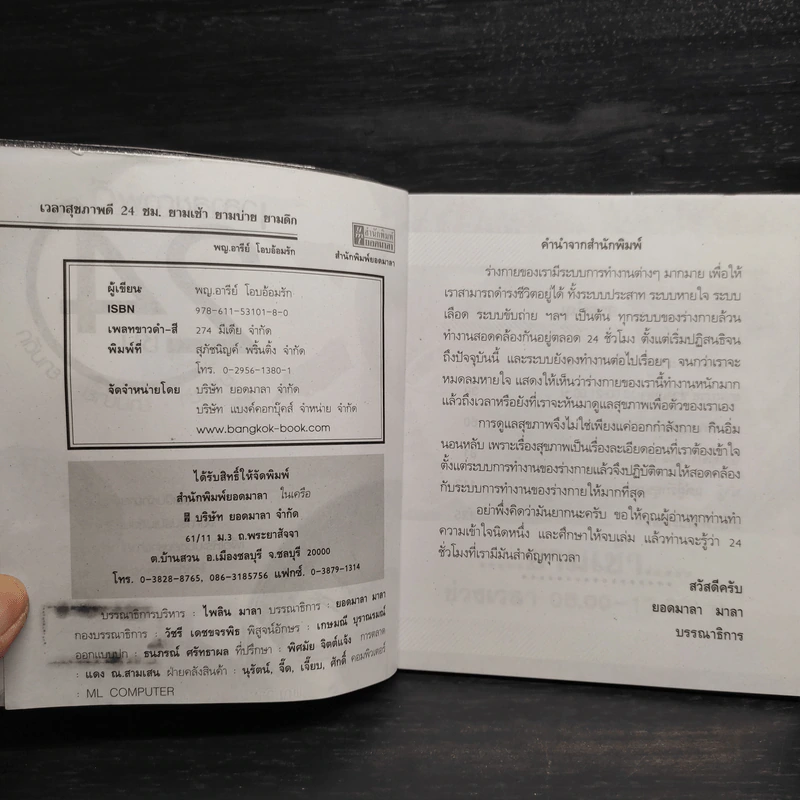 เวลาสุขภาพดี 24 ชม. ยามเช้า ยามบ่าย ยามดึก
พญ.อารีย์ โอบอ้อมรัก
สำนักพิมพ์
ยอดมาลา
สำนักพิมพ์ยอดมาลา
ผู้เขียน พญ.อารีย์ โอบอ้อมรัก
ISBN 978-611-53101-8-0
เพลทขาวดำ-สี 274 มีเดีย จำกัด
พิมพ์ที่ สุภัชนิญค์ พริ้นติ้ง จำกัด
โทร. 0-2956-1380-1
จัดจำหน่ายโดย บริษัท ยอดมาลา จำกัด
บริษัท แบงค์คอกบุ๊คส์ จำหน่าย จำกัด
www.bangkok-book.com
ได้รับสิทธิ์ให้จัดพิมพ์
สำนักพิมพ์ยอดมาลา ในเครือ
บริษัท ยอดมาลา จำกัด
61/11 ม.3 ถ.พระยาสัจจา
ต.บ้านสวน อ.เมืองชลบุรี จ.ชลบุรี 20000
โทร. 0-3828-8765, 086-3185756 แฟกซ์. 0-3879-1314
บรรณาธิการบริหาร : ไพลิน มาลา บรรณาธิการ : ยอดมาลา มาลา
กองบรรณาธิการ : วัชรี เดชขจรพิธ พิสูจน์อักษร : เกษมณี บุราณรมณ์
ออกแบบปก : ธนภรณ์ ศรัทธาผล ที่ปรึกษา : พิศมัย จิตต์แจ้ง การตลาด
: แดง ณ.สามเสน ฝ่ายคลังสินค้า : นุรัตน์, จี๊ด, เจี๊ยบ, ศักดิ์ คอมพิวเตอร์
: ML COMPUTER
คำนำจากสำนักพิมพ์
ร่างกายของเรามีระบบการทำงานต่างๆ มากมาย เพื่อให้
เราสามารถดำรงชีวิตอยู่ได้ ทั้งระบบประสาท ระบบหายใจ ระบบ
เลือด ระบบขับถ่าย ฯลฯ เป็นต้น ทุกระบบของร่างกายล้วน
ทำงานสอดคล้องกันอยู่ตลอด 24 ชั่วโมง ตั้งแต่เริ่มปฏิสนธิจน
ถึงปัจจุบันนี้ และระบบยังคงทำงานต่อไปเรื่อยๆ จนกว่าเราจะ
หมดลมหายใจ แสดงให้เห็นว่าร่างกายของเรานี้ทำงานหนักมาก
แล้วถึงเวลาหรือยังที่เราจะหันมาดูแลสุขภาพเพื่อตัวของเราเอง
การดูแลสุขภาพจึงไม่ใช่เพียงแค่ออกกำลังกาย กินอิ่ม
นอนหลับ เพราะเรื่องสุขภาพเป็นเรื่องละเอียดอ่อนที่เราต้องเข้าใจ
ตั้งแต่ระบบการทำงานของร่างกายแล้วจึงปฏิบัติตามให้สอดคล้อง
กับระบบการทำงานของร่างกายให้มากที่สุด
อย่าพึ่งคิดว่ามันยากนะครับ ขอให้คุณผู้อ่านทุกท่านทำ
ความเข้าใจนิดหนึ่ง และศึกษาให้จบเล่ม แล้วท่านจะรู้ว่า 24
ชั่วโมงที่เรามีมันสำคัญทุกเวลา
สวัสดีครับ
ยอดมาลา มาลา
บรรณาธิการ